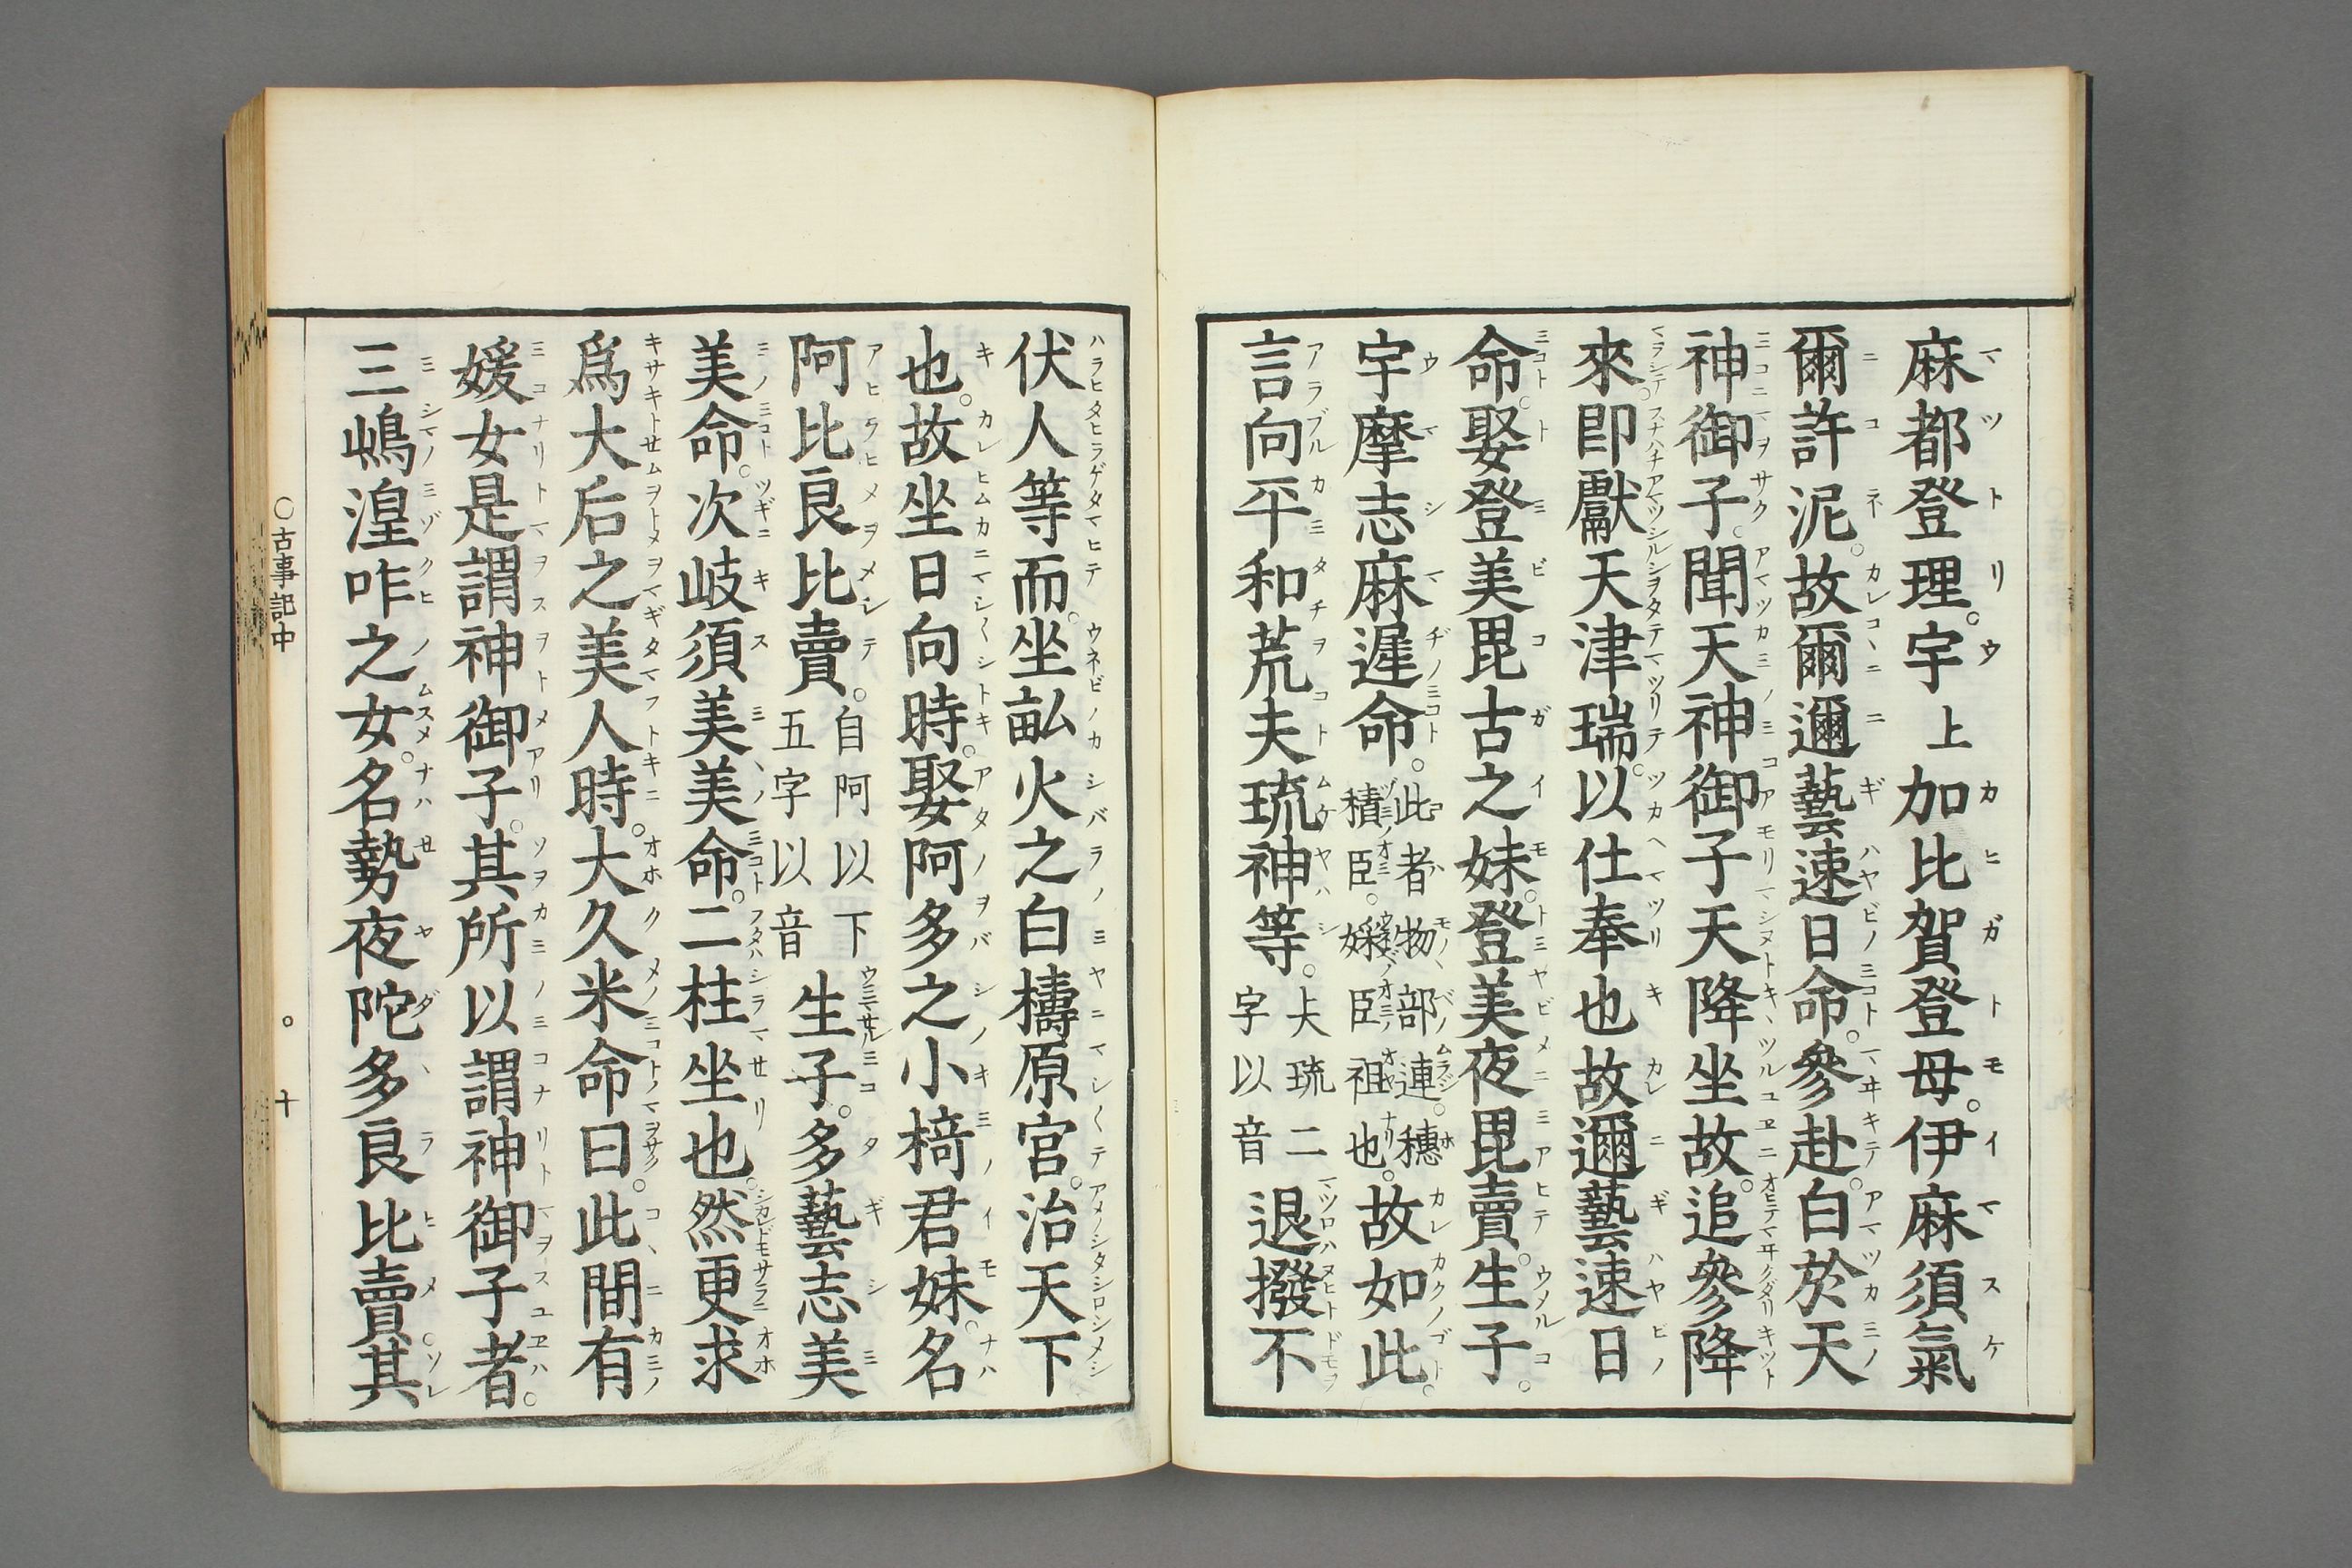 麻都登理。宇上加比賀登母。伊麻須氣
爾許泥。故爾邇藝速日命。參赴。白於天
神御子。聞天神御子天降坐故。追參降
來。即獻天津瑞。以仕奉也故邇藝速日
命。娶登美毘古之妹。登美夜毘賣。生子。
宇摩志麻遲命。此者物部連。穗積臣。婇臣祖也。故如此。
言向平和荒夫琉神等。夫琉二字以音退撥不
伏人等而。坐畝火之白檮原宮。治天下
也。故坐日向時。娶阿多之小椅君妹。名
阿比良比賣。自阿以下五字以音生子。多藝志美
美命。次岐須美美命。二柱坐也。然更求
爲大后之美人時。大久米命曰。此間有
媛女是謂神御子。其所以謂神御子者。
三嶋湟咋之女。名勢夜陀多良比賣其
○古事記中
十